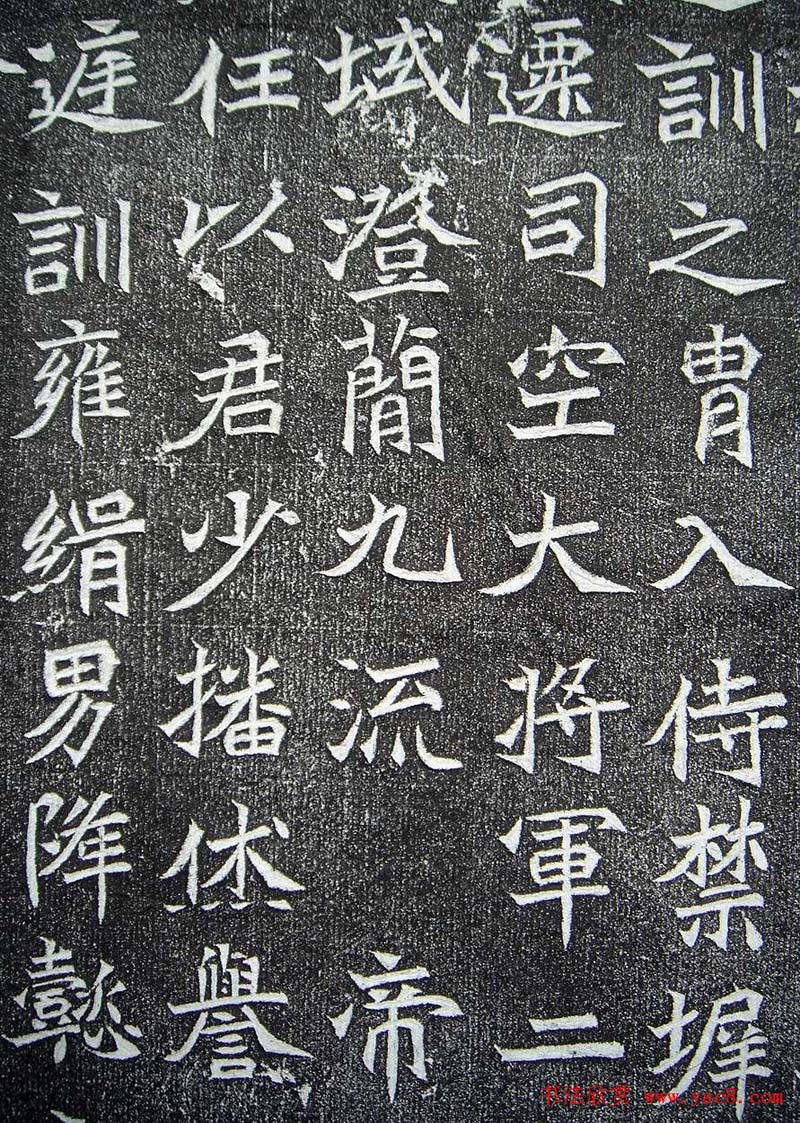 訓之胄入侍禁墀
遷司空大將軍二
域澄簡九流 帝
任以君少播休譽
訓雍緝男降懿
书法欣赏 www.yac8.com